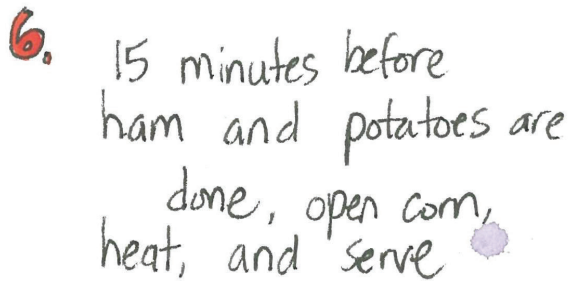 6. 15 minutes before
ham and potatoes are
done, open corn,
heat, and serve